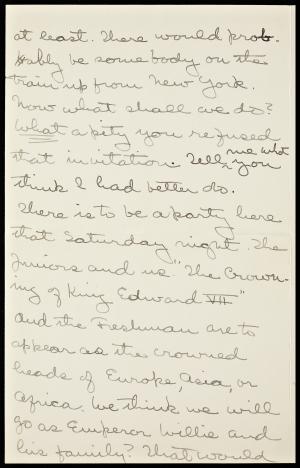 at least. There would prob.
ably be somebody on the
train up from New York.
Now what shall we do?
What a pity you refused
that invitation. Tell me what you
think I had better do.
There is to be a party here
that Saturday night. The
Juniors and us "The Crown-
ing of King Edward VII"
and the Freshman are to
appear as the crowned
heads of Europe, Asia, or
Africa. We think we will
go as Emperor Willie and
his family? That would